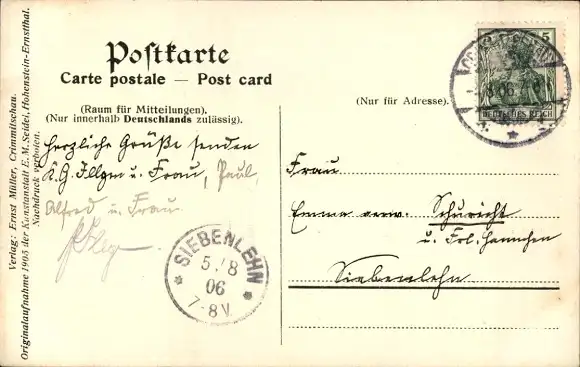 Postkarte
Carte postale — Post card
(Raum für Mitteilungen).
(Nur innerhalb Deutschlands zulässig).
(Nur für Adresse).
Herzliche Grüße senden
K. G. Illgen u. Frau, Paul,
Alfred u. Frau
Frau
Emma verw. Schuricht
u. Frl. Hannchen
Siebenlehn
SIEBENLEHN
5/8
06
7-8V.
8.06
5
DEUTSCHES REICH
Verlag: Ernst Müller, Crimmitschau.
Originalaufnahme 1905 der Kunstanstalt E. M. Seidel, Hohenstein-Ernstthal.
Nachdruck verboten.